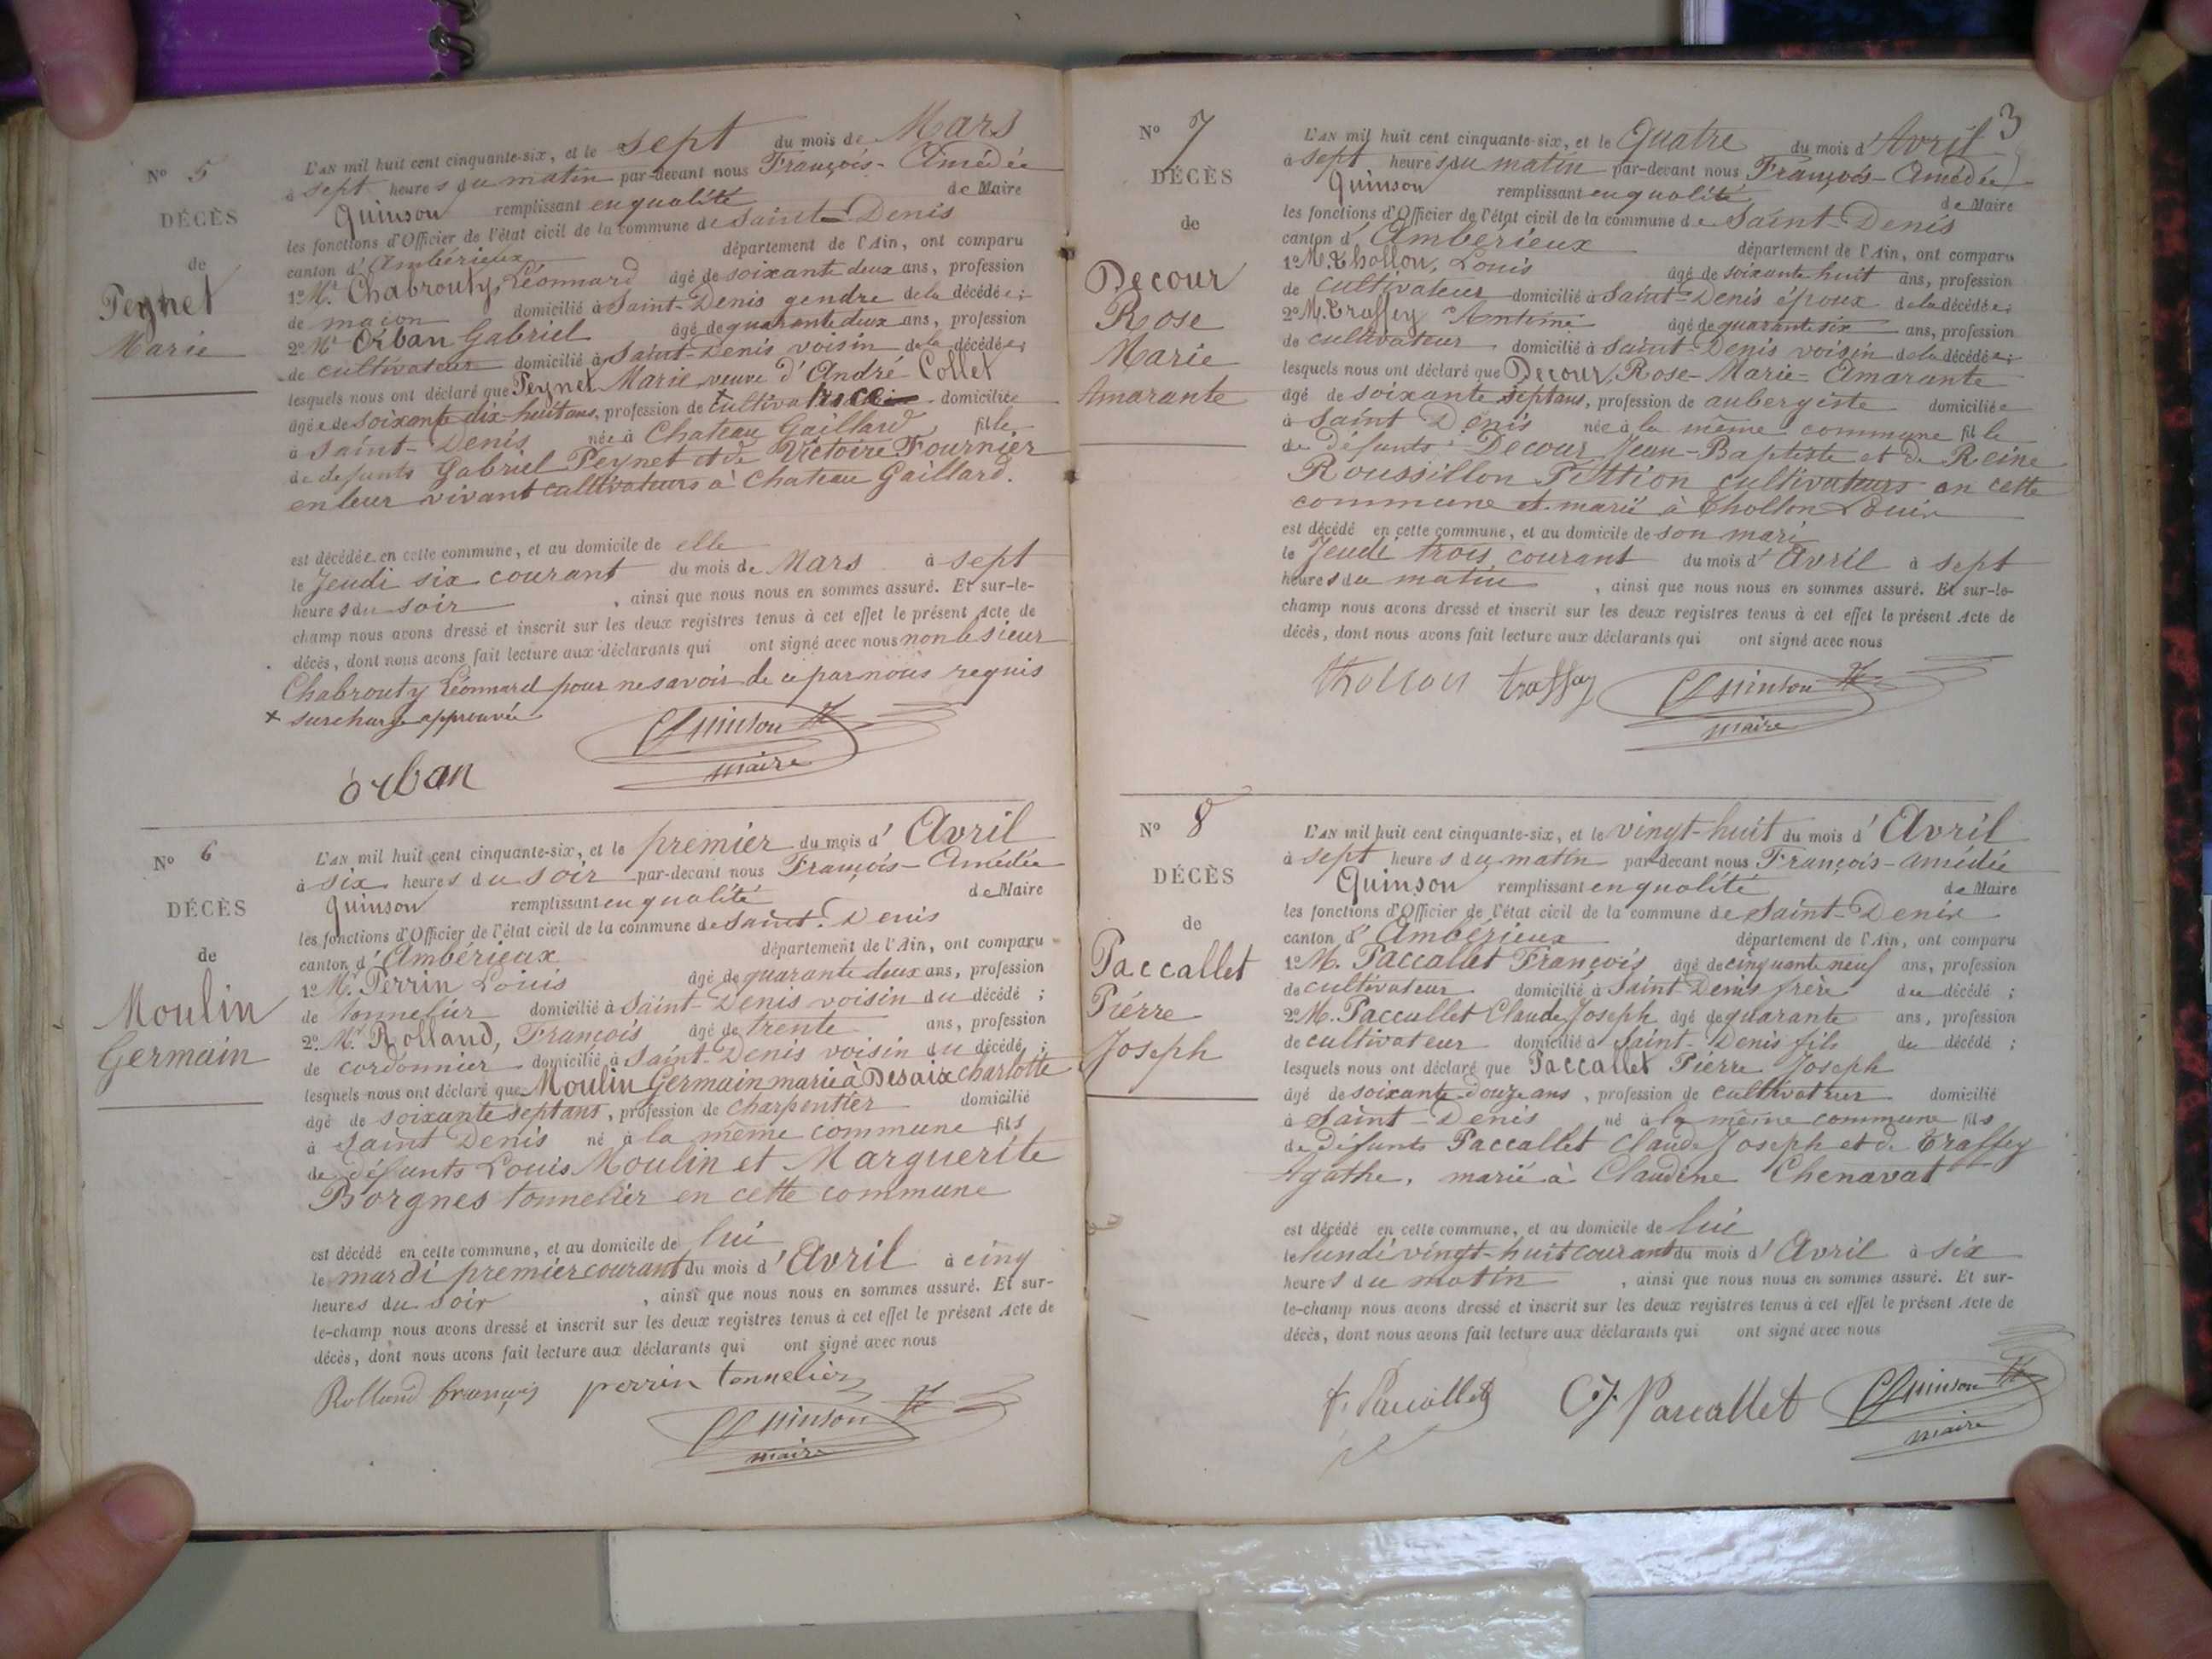 N° 5
DÉCÈS
de
Peynet
Marie
L'AN mil huit cent cinquante-six, et le sept du mois de Mars
à sept heures du matin par-devant nous François-Amédée
Quinson remplissant en qualité de Maire
les fonctions d'Officier de l'état civil de la commune de Saint-Denis
canton d'Ambérieux département de l'Ain, ont comparu
1° M. Chabrouty, Léonnard âgé de soixante deux ans, profession
de maçon domicilié à Saint-Denis gendre de la décédée;
2° M. Orban Gabriel âgé de quarante deux ans, profession
de cultivateur domicilié à Saint-Denis voisin de la décédée;
lesquels nous ont déclaré que Peynet Marie veuve d'André Collet
âgée de soixante dix huit ans, profession de cultivatrice domiciliée
à Saint-Denis née à Chateau Gaillard fille
de defunts Gabriel Peynet et de Victoire Fournier
en leur vivant cultivateurs à Chateau Gaillard.
est décédée en cette commune, et au domicile de elle
le Jeudi six courant du mois de Mars à sept
heures du soir, ainsi que nous nous en sommes assuré. Et sur-le-
champ nous avons dressé et inscrit sur les deux registres tenus à cet effet le présent Acte de
décès, dont nous avons fait lecture aux déclarants qui ont signé avec nous non le sieur
Chabrouty Léonnard pour ne savoir de ce par nous requis
+ surcharge approuvée
Quinson
maire
orban
N° 6
DÉCÈS
de
Moulin
Germain
L'AN mil huit cent cinquante-six, et le premier du mois d'Avril
à six heures du soir par-devant nous François-Amédée
Quinson remplissant en qualité de Maire
les fonctions d'Officier de l'état civil de la commune de Saint-Denis
canton d'Ambérieux département de l'Ain, ont comparu
1° M. Perrin Louis âgé de quarante deux ans, profession
de tonnelier domicilié à Saint-Denis voisin du décédé;
2° M. Rolland, François âgé de trente ans, profession
de cordonnier domicilié à Saint-Denis voisin du décédé;
lesquels nous ont déclaré que Moulin Germain marié à Desaix charlotte
âgé de soixante sept ans, profession de charpentier domicilié
à Saint Denis né à la même commune fils
de défunts Louis Moulin et Marguerite
Borgnes tonnelier en cette commune
est décédé en cette commune, et au domicile de lui
le mardi premier courant du mois d'Avril à cinq
heures du soir, ainsi que nous nous en sommes assuré. Et sur-
le-champ nous avons dressé et inscrit sur les deux registres tenus à cet effet le présent Acte de
décès, dont nous avons fait lecture aux déclarants qui ont signé avec nous
Rolland françois perrin tonnelier
Quinson
maire
3
N° 7
DÉCÈS
de
Decour
Rose
Marie
Amarante
L'AN mil huit cent cinquante-six, et le Quatre du mois d'Avril
à sept heures du matin par-devant nous François-Amédée
Quinson remplissant en qualité de Maire
les fonctions d'Officier de l'état civil de la commune de Saint-Denis
canton d'Amberieux département de l'Ain, ont comparu
1° M. Thollon, Louis âgé de soixante huit ans, profession
de cultivateur domicilié à Saint-Denis époux de la décédée;
2° M. Traffey Antime âgé de quarante six ans, profession
de cultivateur domicilié à Saint-Denis voisin de la décédée;
lesquels nous ont déclaré que Decour, Rose-Marie-Amarante
âgé de soixante sept ans, profession de aubergiste domiciliée
à Saint Denis née à la même commune fille
de défunts Decour Jean-Baptiste et de Reine
Roussillon Pittion cultivateurs en cette
commune et marié à Thollon Louis
est décédé en cette commune, et au domicile de son mari
le Jeudi trois courant du mois d'Avril à sept
heures du matin, ainsi que nous nous en sommes assuré. Et sur-le-
champ nous avons dressé et inscrit sur les deux registres tenus à cet effet le présent Acte de
décès, dont nous avons fait lecture aux déclarants qui ont signé avec nous
thollon traffey Quinson
maire
N° 8
DÉCÈS
de
Paccallet
Piérre
Joseph
L'AN mil huit cent cinquante-six, et le vingt-huit du mois d'Avril
à sept heures du matin par-devant nous François-amédée
Quinson remplissant en qualité de Maire
les fonctions d'Officier de l'état civil de la commune de Saint-Denis
canton d'Ambérieux département de l'Ain, ont comparu
1° M. Paccallet François âgé de cinquante neuf ans, profession
de cultivateur domicilié à Saint-Denis frère du décédé;
2° M. Paccallet Claude Joseph âgé de quarante ans, profession
de cultivateur domicilié à Saint-Denis fils du décédé;
lesquels nous ont déclaré que Paccallet Pierre Joseph
âgé de soixante douze ans, profession de cultivateur domicilié
à Saint-Denis né à la même commune fils
de défunts Paccallet Claude Joseph et de Traffey
Agathe, marié à Claudine Chenavat
est décédé en cette commune, et au domicile de lui
le lundi vingt-huit courant du mois d'Avril à six
heures du matin, ainsi que nous nous en sommes assuré. Et sur-
le-champ nous avons dressé et inscrit sur les deux registres tenus à cet effet le présent Acte de
décès, dont nous avons fait lecture aux déclarants qui ont signé avec nous
f. Paccallet CJ Paccallet Quinson
maire